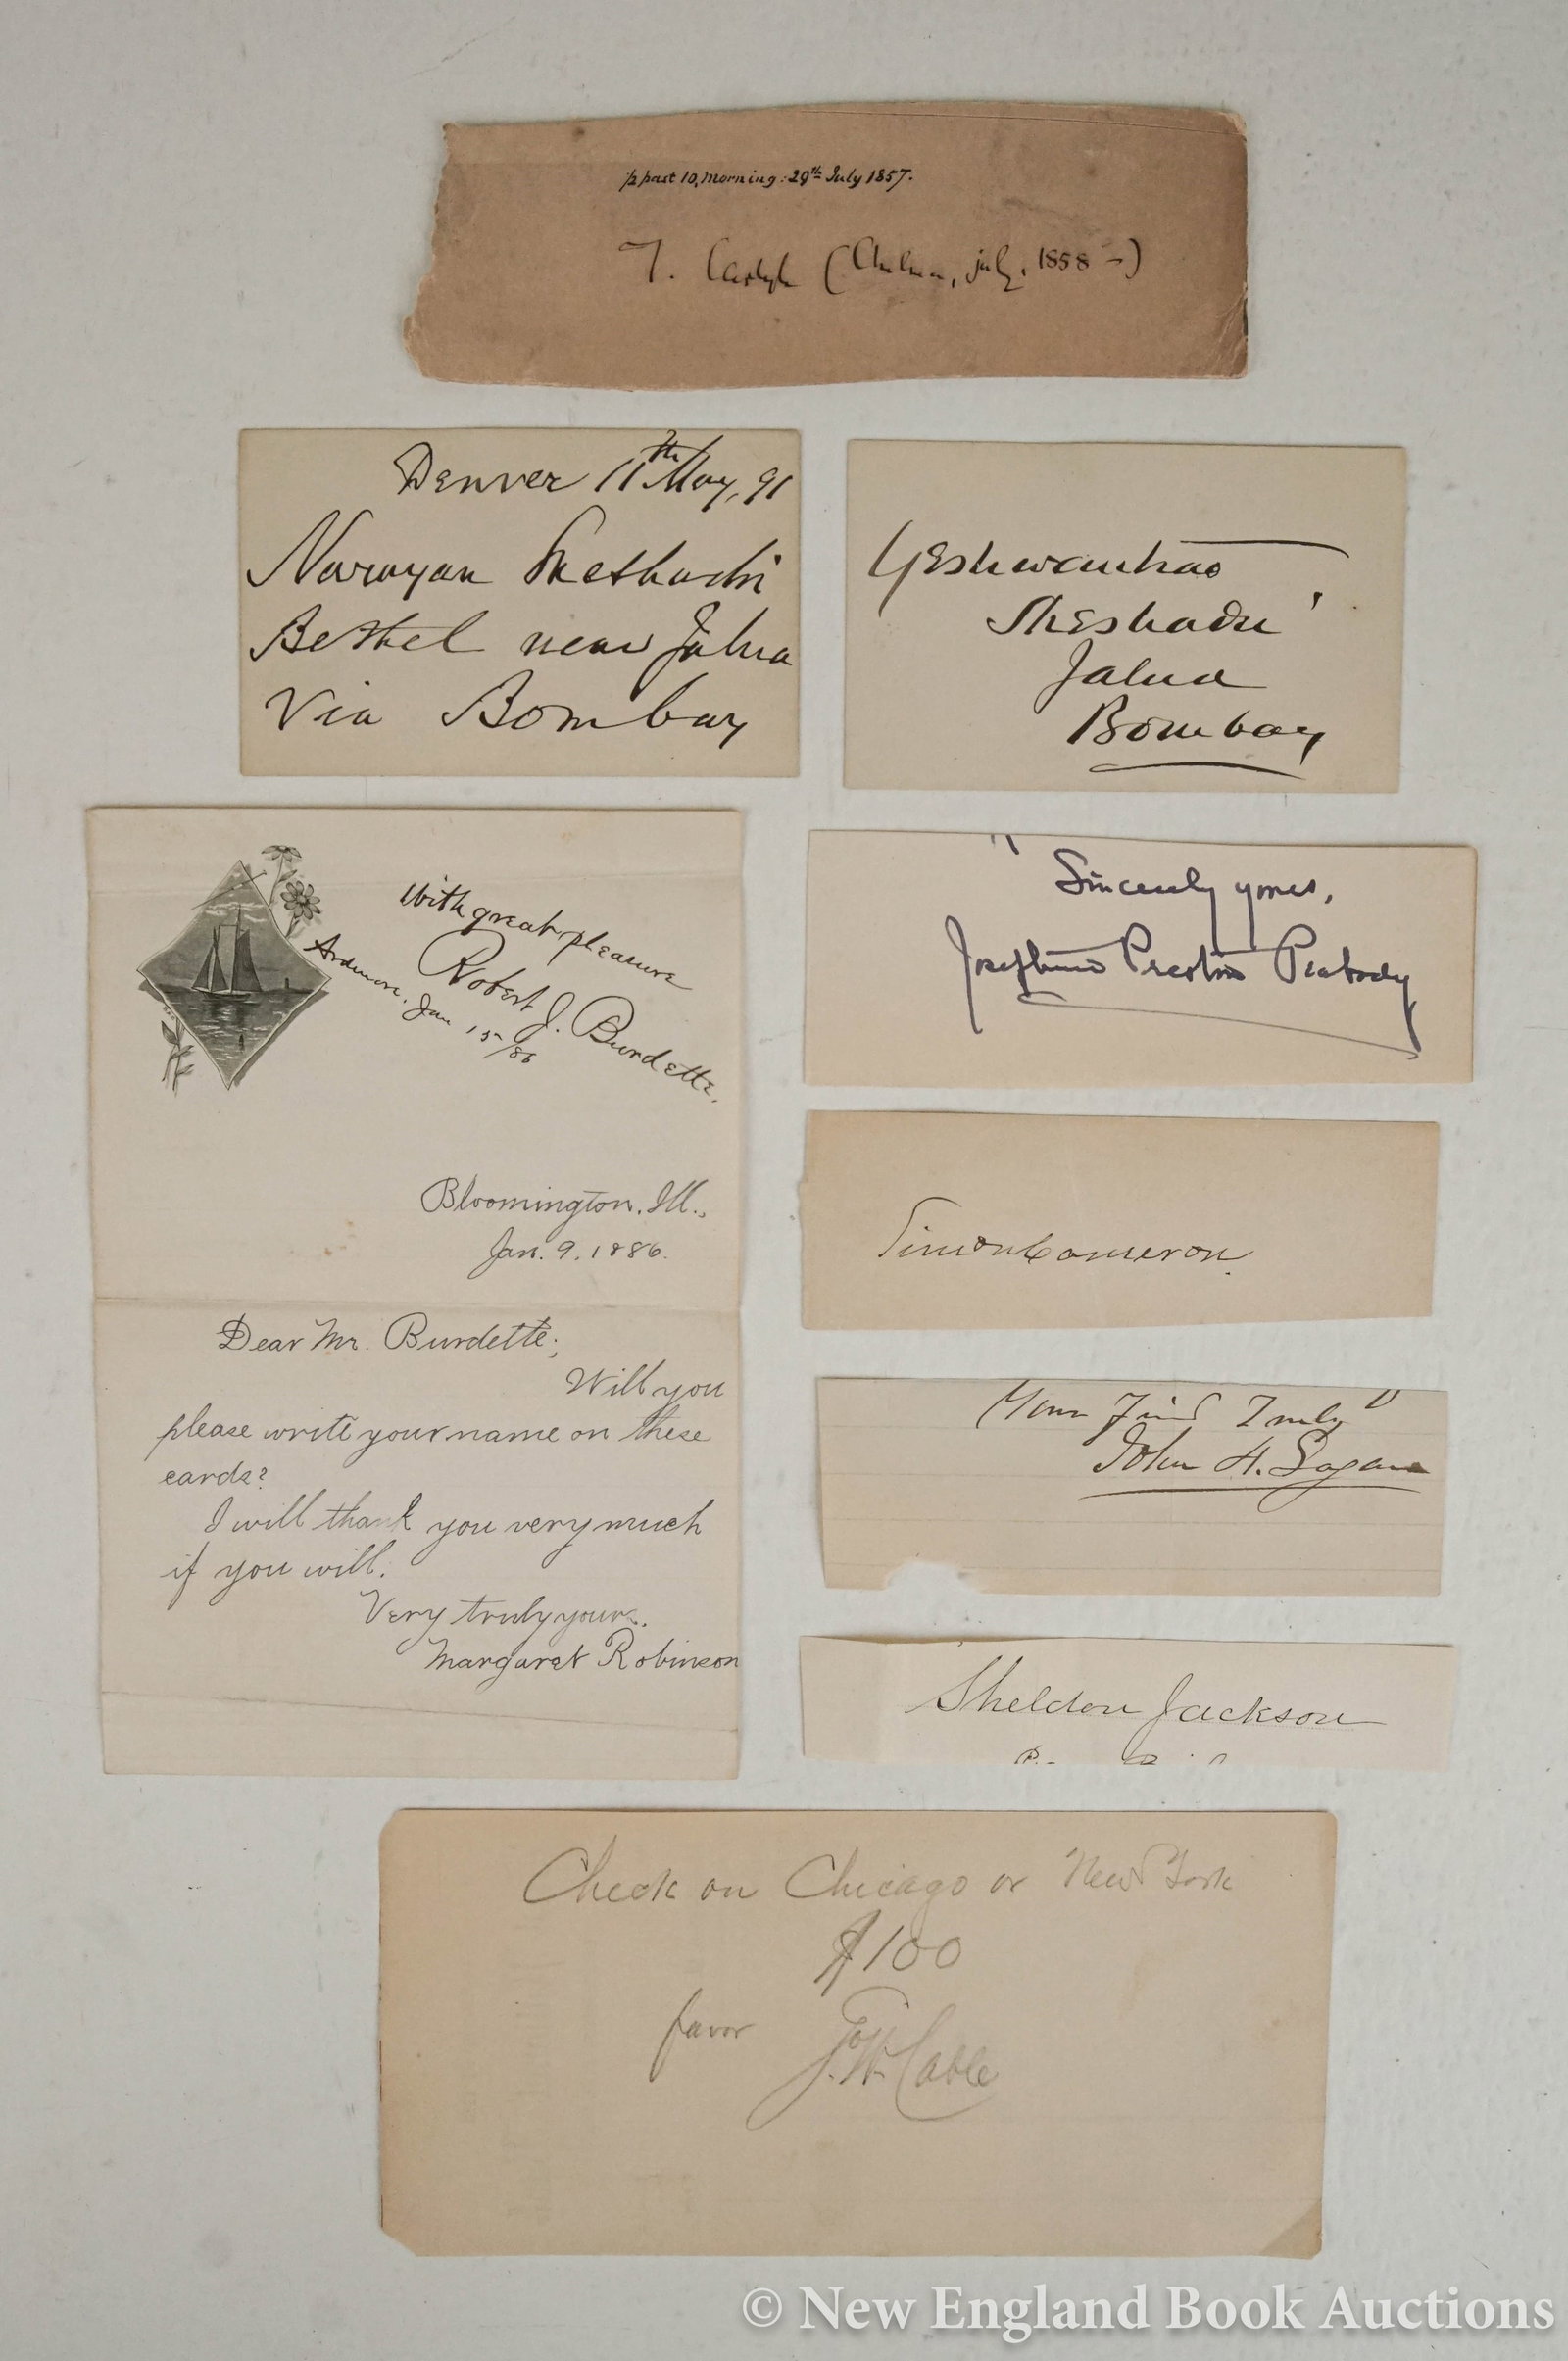 ½ past 10, Morning: 29th July 1857.
T. Carlyle (Chelsea, july, 1858 –)
Denver 11th May, 91
Narayan Sheshadri
Bethel near Jalna
Via Bombay
Yeshwantrao
Sheshadri
Jalna
Bombay
With great pleasure
Robert J. Burdette.
Ardmore. Jan 15/86
Bloomington. Ill.,
Jan. 9, 1886.
Dear Mr. Burdette;
Will you
please write your name on these
cards?
I will thank you very much
if you will.
Very truly yours.
Margaret Robinson
Sincerely yours,
Josephine Preston Peabody
Simon Cameron.
Truly
John A. Logan
Sheldon Jackson
Check on Chicago or New York
$100
favor
Cable
© New England Book Auctions